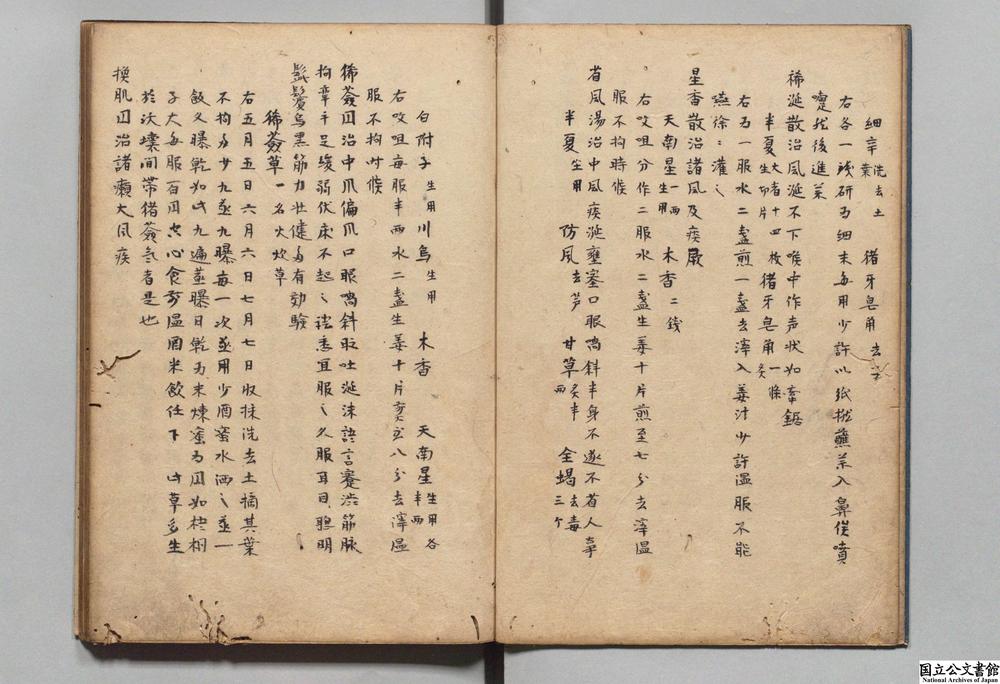 細辛 洗去土葉 猪牙皂角 去子
右各一錢研为細末每用少許以紙撚蘸茶入鼻俟噴
嚏然後進茶
稀涎散治風涎不下喉中作声状如牽鋸
半夏 大者十四枚生切片 猪牙皂角 一條炙
右为一服水二盞煎一盞去滓入姜汁少許温服不能
嚥徐〻灌之
星香散治諸風及痰厥
天南星 一两生用 木香 二錢
右㕮咀分作二服水二盞生姜十片煎至七分去滓温
服不拘時候
省風湯治中風痰涎壅塞口眼喎斜半身不遂不省人事
半夏 生用 防風 去芦 甘草 炙半两 全蝎 去毒三个
白附子 生用 川烏 生用 木香 天南星 生用各半两
右㕮咀每服半两水二盞生姜十片煎至八分去滓温
服不拘时候
豨薟囙治中風偏風口眼喎斜時吐涎沫語言蹇澁筋脉
拘攣手足緩弱伏床不起〻法悉宜服之久服耳目聰明
髭鬢烏黑筋力壮健多有効驗
豨薟草 一名火炊草
右五月五日六月六日七月七日收採洗去土摘其葉
不拘多少九蒸九曝每一次蒸用少酒蜜水洒之蒸一
飯久曝乾如此九遍蒸曝日乾为末煉蜜为囙如梧桐
子大每服百囙空心食前温酒米飲任下此草多生
於沃壤間帶猪薟氣者是也
換肌囙治諸癩大風疾
国立公文書館
National Archives of Japan